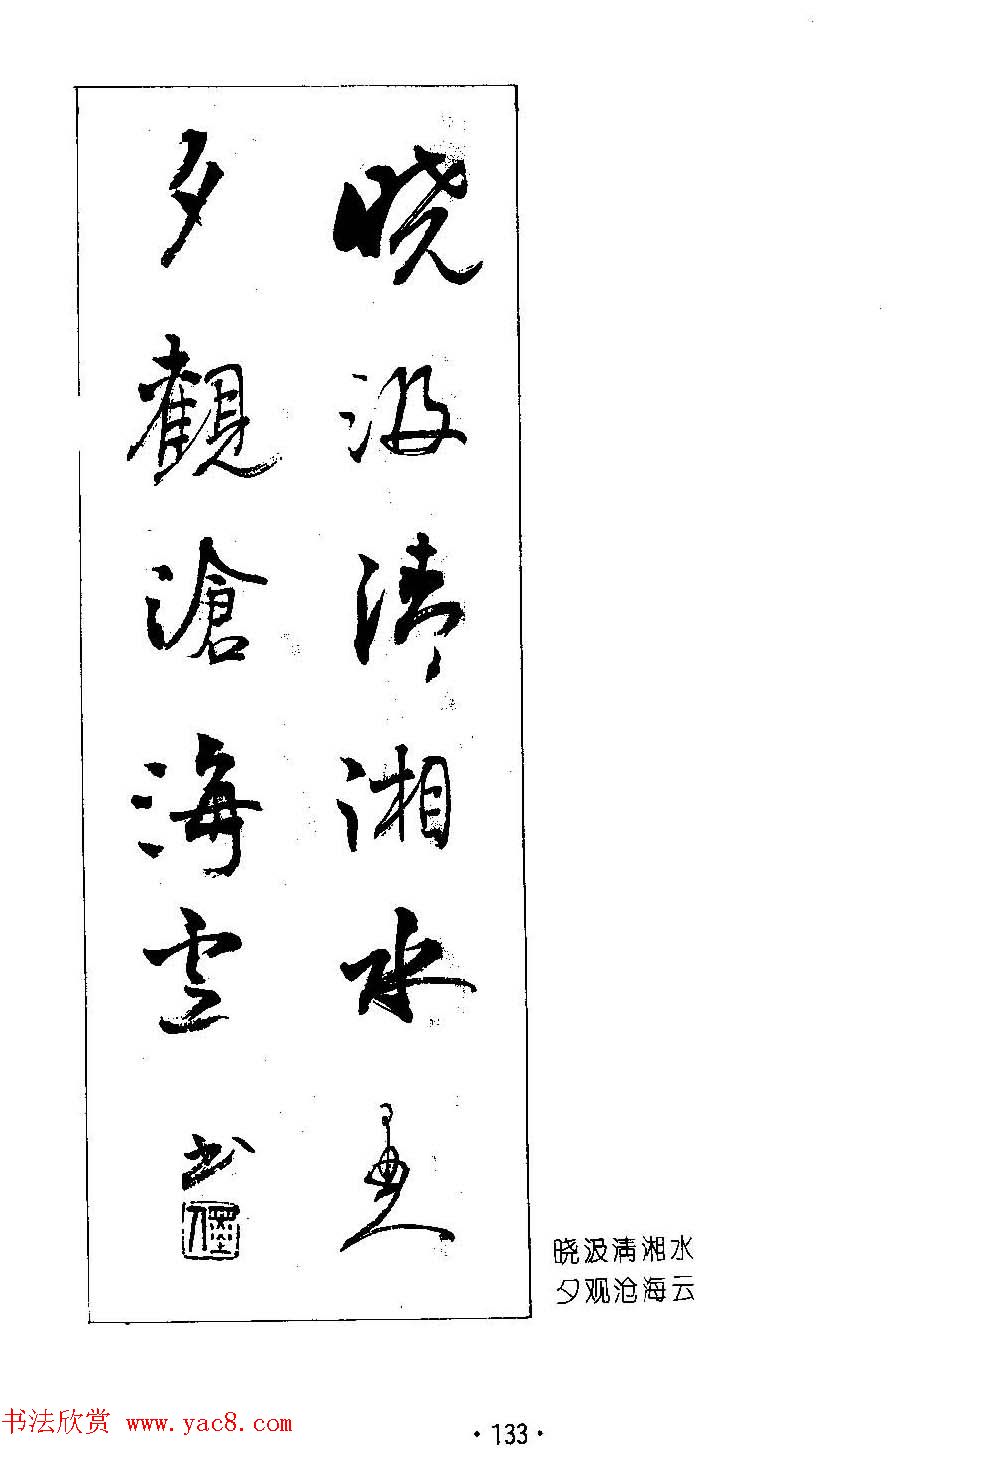 晓汲清湘水
夕觀滄海雲
书
晓汲清湘水
夕观沧海云
书法欣赏 www.yac8.com
·133·